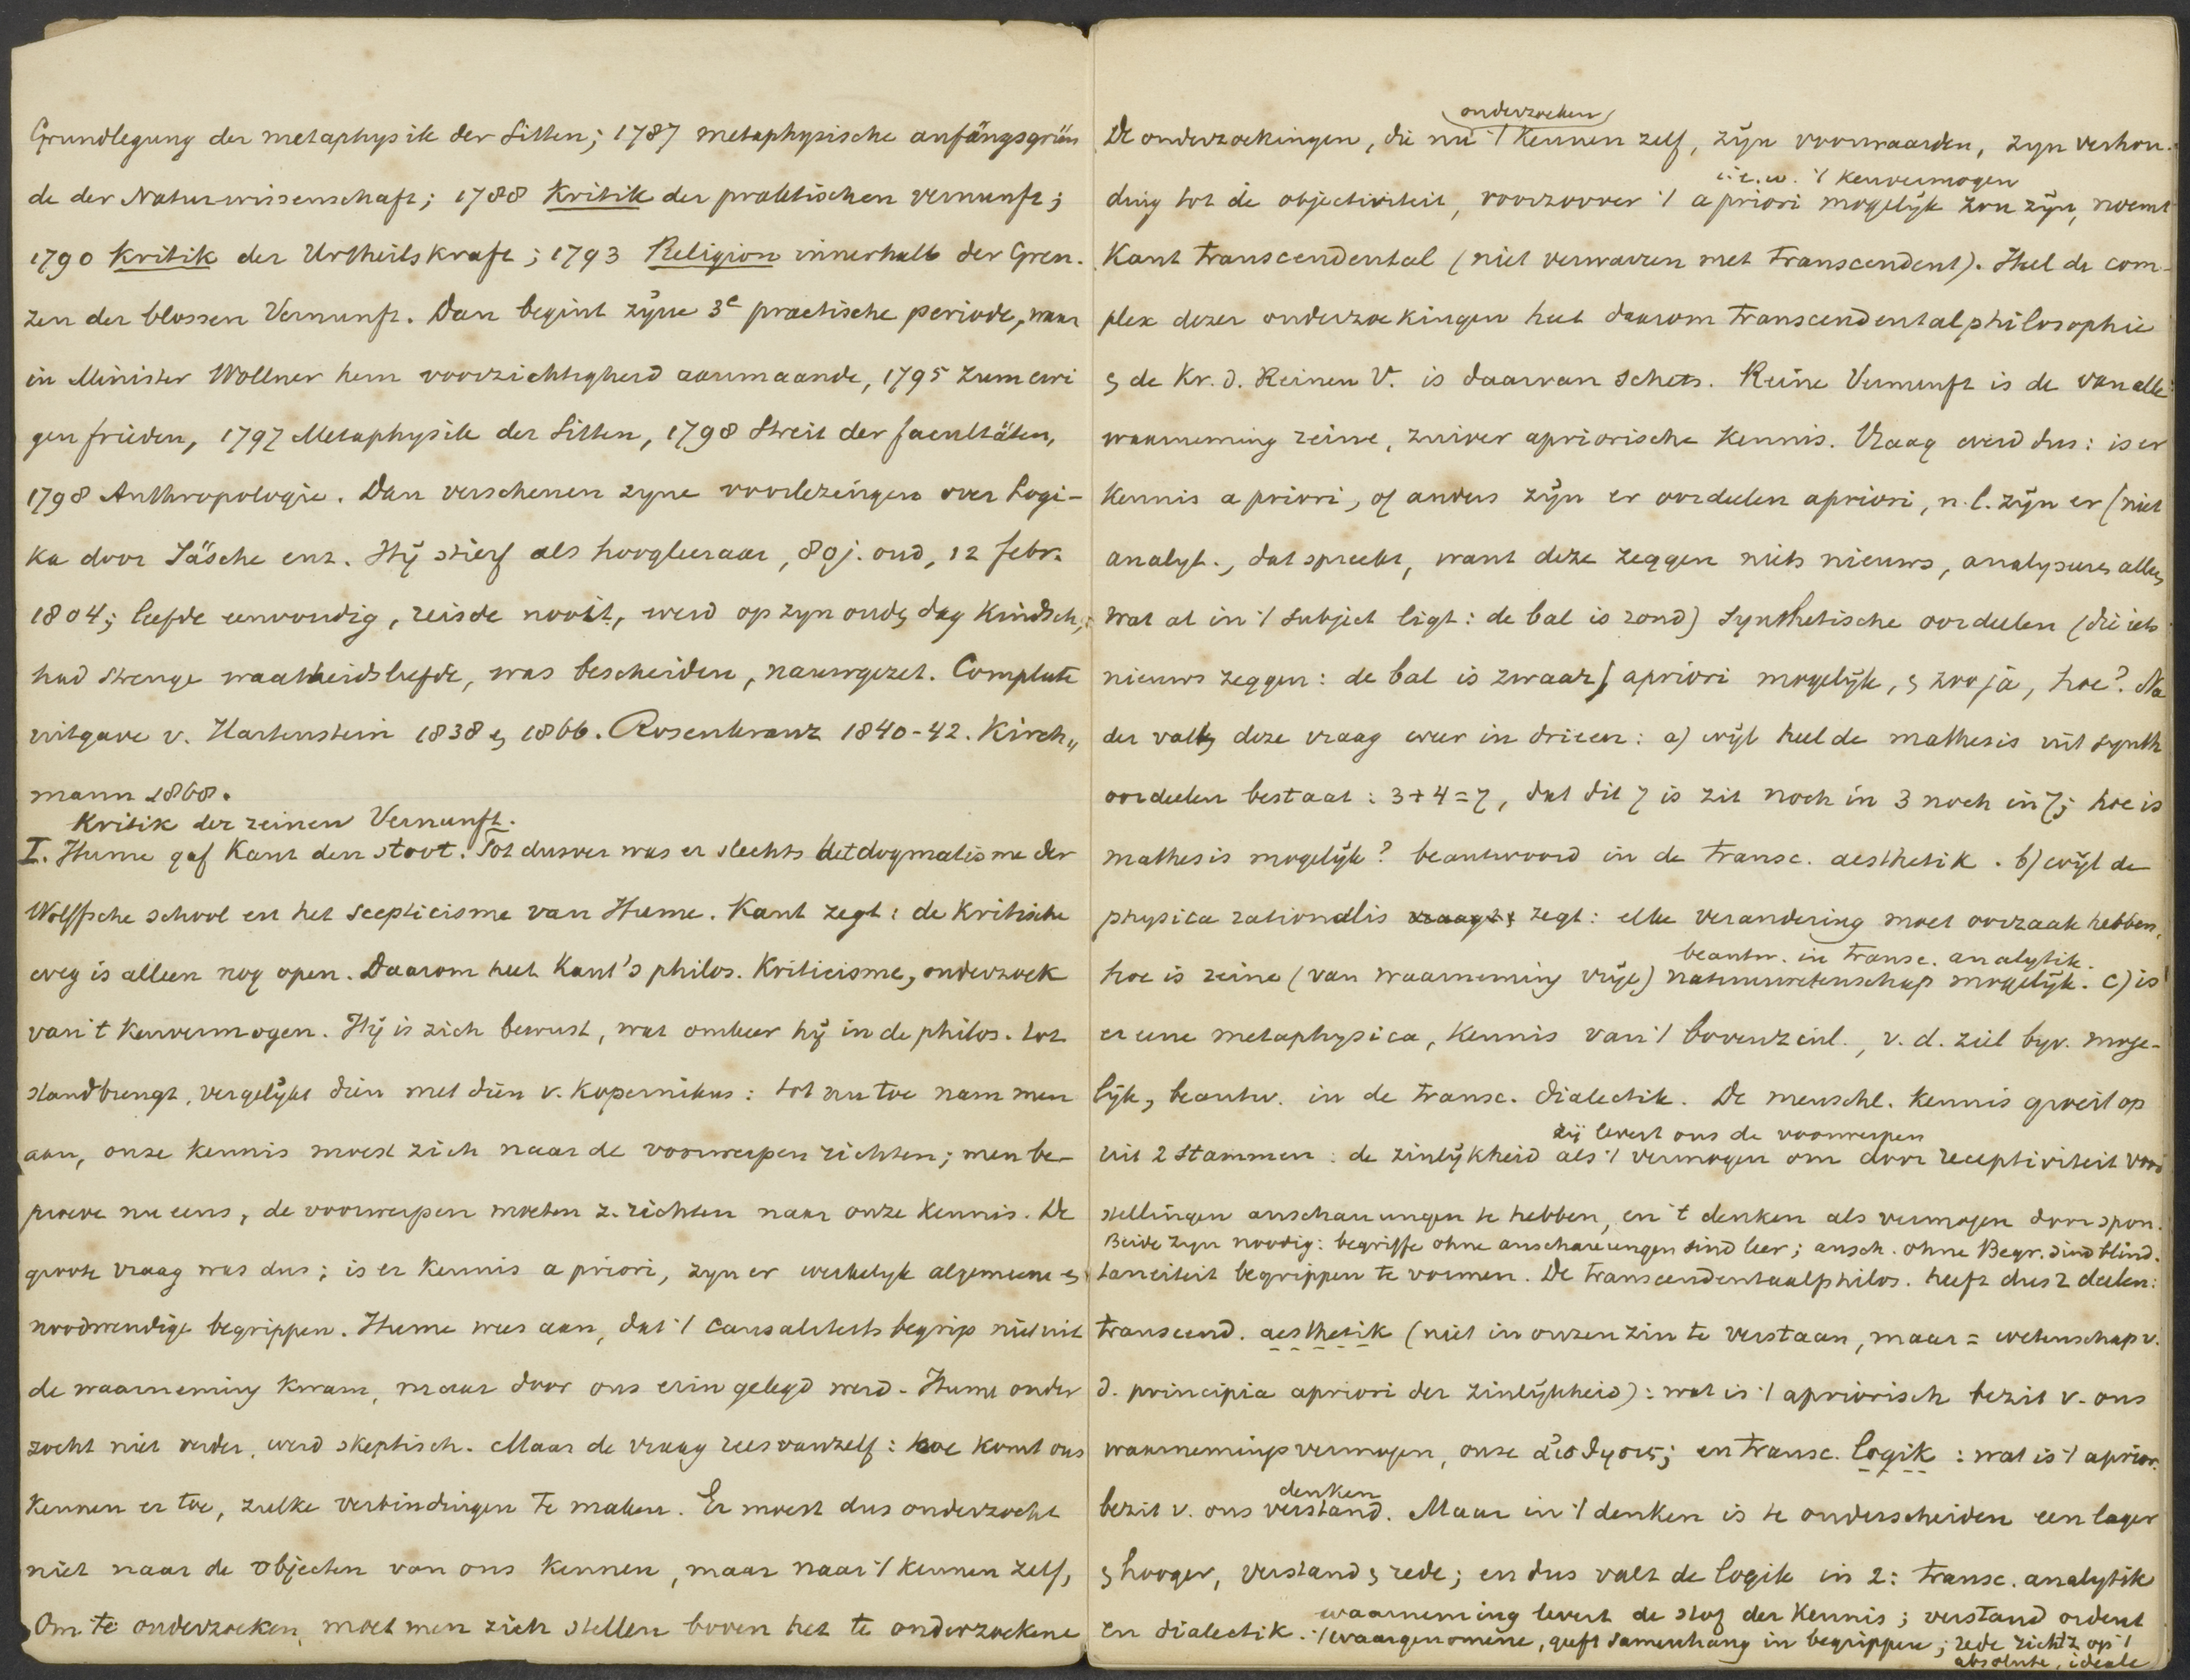 Grundlegung der metaphysik der Sitten; 1787 metaphysische anfängsgrün
de der Naturwissenschaft; 1788 Kritik der praktischen vernunft;
1790 Kritik der Urtheilskraft; 1793 Religion innerhalb der Gren-
zen der blossen Vernunft. Dan begint zijne 3e practische periode, waar
in Minister Wöllner hem voorzichtigheid aanmaande, 1795 zum ewi
gen frieden, 1797 Metaphysik der Sitten, 1798 Streit der facultäten,
1798 Anthropologie. Dan verschenen zyne voorlezingen over Logi-
ka door Jäsche enz. Hij stierf als hoogleeraar, 80 j. oud, 12 febr.
1804; leefde eenvoudig, reisde nooit, werd op zyn ouden dag Kindsch,
had strenge waarheidsliefde, was bescheiden, nauwgezet. Complete
uitgave v. Hartenstein 1838 en 1866. Rosenkranz 1840-42. Kirch„
mann 1868.
Kritik der reinen Vernunft.
I. Hume gaf Kant den stoot. Tot dusver was er slechts het dogmatisme der
Wolffsche school en het scepticisme van Hume. Kant zegt: de Kritische
weg is alleen nog open. Daarom heet Kant's philos. Kriticisme, onderzoek
van 't kenvermogen. Hij is zich bewust, wat omkeer hij in de philos. tot
stand brengt, vergelijkt dien met dien v. Kopernikus: tot nu toe nam men
aan, onze kennis moest zich naar de voorwerpen richten; men be-
proeve nu eens, de voorwerpen moeten z. richten naar onze kennis. De
groote vraag was dus; is er kennis a priori, zyn er werkelyk algemeene en
noodwendige begrippen. Hume wees aan, dat 't causaliteits begrip niet uit
de waarneming kwam, maar door ons erin gelegd werd. Hume onder
zocht niet verder, werd skeptisch. Maar de vraag rees vanzelf: hoe komt ons
kennen er toe, zulke verbindingen te maken. Er moest dus onderzocht
niet naar de objecten van ons kennen, maar naar 't kennen zelf,
Om te onderzoeken, moet men zich stellen boven het te onderzoekene
onderzoeken
De onderzoekingen, die nu 't kennen zelf, zijn voorwaarden, zyn verhou-
d.i.w. 't kenvermogen
ding tot de objectiviteit, voorzoover 't a priori mogelijk zou zijn, noemt
Kant transcendental (niet verwarren met transcendent). Heel de com-
plex dezer onderzoekingen heet daarom transcendentalphilosophie
en de Kr. d. Reinen V. is daarvan schets. Reine Vernunft is de van alle
waarneming reine, zuiver apriorische kennis. Vraag werd dus: is er
kennis a priori, of anders zijn er oordeelen apriori, n.l. zijn er (niet
analyt., dat spreekt, want deze zeggen niets nieuws, analyseeren alleen,
wat al in 't subject ligt: de bal is rond) synthetische oordeelen (die iets
nieuws zeggen: de bal is zwaar) apriori mogelijk, en zoo ja, hoe? Na
der valt deze vraag weer in drieen: a) wijl heel de mathesis uit synth
oordeelen bestaat: 3+4=7, dat dit 7 is zit noch in 3 noch in 7; hoe is
mathesis mogelijk? beantwoord in de transc. aesthetik. b) wijl de
physica rationalis zegt: elke verandering moet oorzaak hebben,
beantw. in transc. analytik.
hoe is reine (van waarneming vrije) natuurwetenschap mogelijk. c) is
er eene metaphysica, kennis van 't bovenzinl., v. d. ziel byv. moge-
lijk, beantw. in de transc. dialectik. De menschl. kennis groeit op
zij levert ons de voorwerpen
uit 2 stammen: de zinlijkheid als 't vermogen om door receptiviteit voor
stellingen anschauungen te hebben, en 't denken als vermogen door spon-
Beide zyn noodig: begriffe ohne anschauungen sind leer; ansch. ohne Begr. sind blind.
taneiteit begrippen te vormen. De transcendentaalphilos. heeft dus 2 deelen:
transcend. aesthetik (niet in onzen zin te verstaan, maar = wetenschap v.
d. principia apriori der zinlijkheid): wat is 't apriorisch bezit v. ons
waarnemingsvermogen, onze αἴσθησις; en transc. logik: wat is 't aprior.
denken
bezit v. ons verstand. Maar in 't denken is te onderscheiden een lager
en hooger, verstand en rede; en dus valt de logik in 2: transc. analytik
en dialectik. waarneming levert de stof der kennis; verstand ordent
't waargenomene, geeft samenhang in begrippen; rede richt z. op 't
absolute, ideale